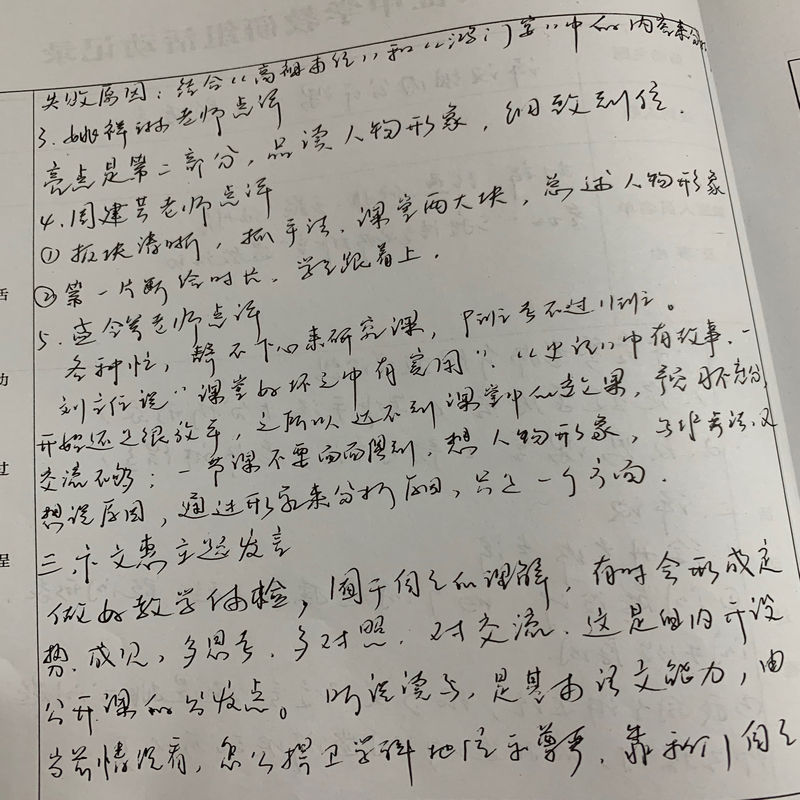 失败原因：结合“高祖本纪”和“鸿门宴”中的内容来分
3.姚祥琳老师点评
亮点是第二部分，品读人物形象，细致到位.
4.周建芸老师点评
①板块清晰，抓手法.课堂两大块，总述人物形象
②第一片断给时长.学生跟着上.
5.老师点评
各种忙，静不下心来研究课，
刘主任说“课堂好坏之中有”.“史记”中有故事.一
开始还是很效率，之所以达不到课堂中的课，预习不充分
交流不够；一节课不要面面俱到.想人物形象，与非，又
想说原因，通过形象来分析原因，只是一个方面.
三.卞文惠主题发言
做好教学体检，囿于自己的理解，有时会形成定
势.成见，多思考.多对照.对交流.这是组内开设
公开课的出发点。听说读写，是基本语文能力，由
当前情况看，怎么捍卫学科地位和尊严，靠我们自己
活
动
过
程